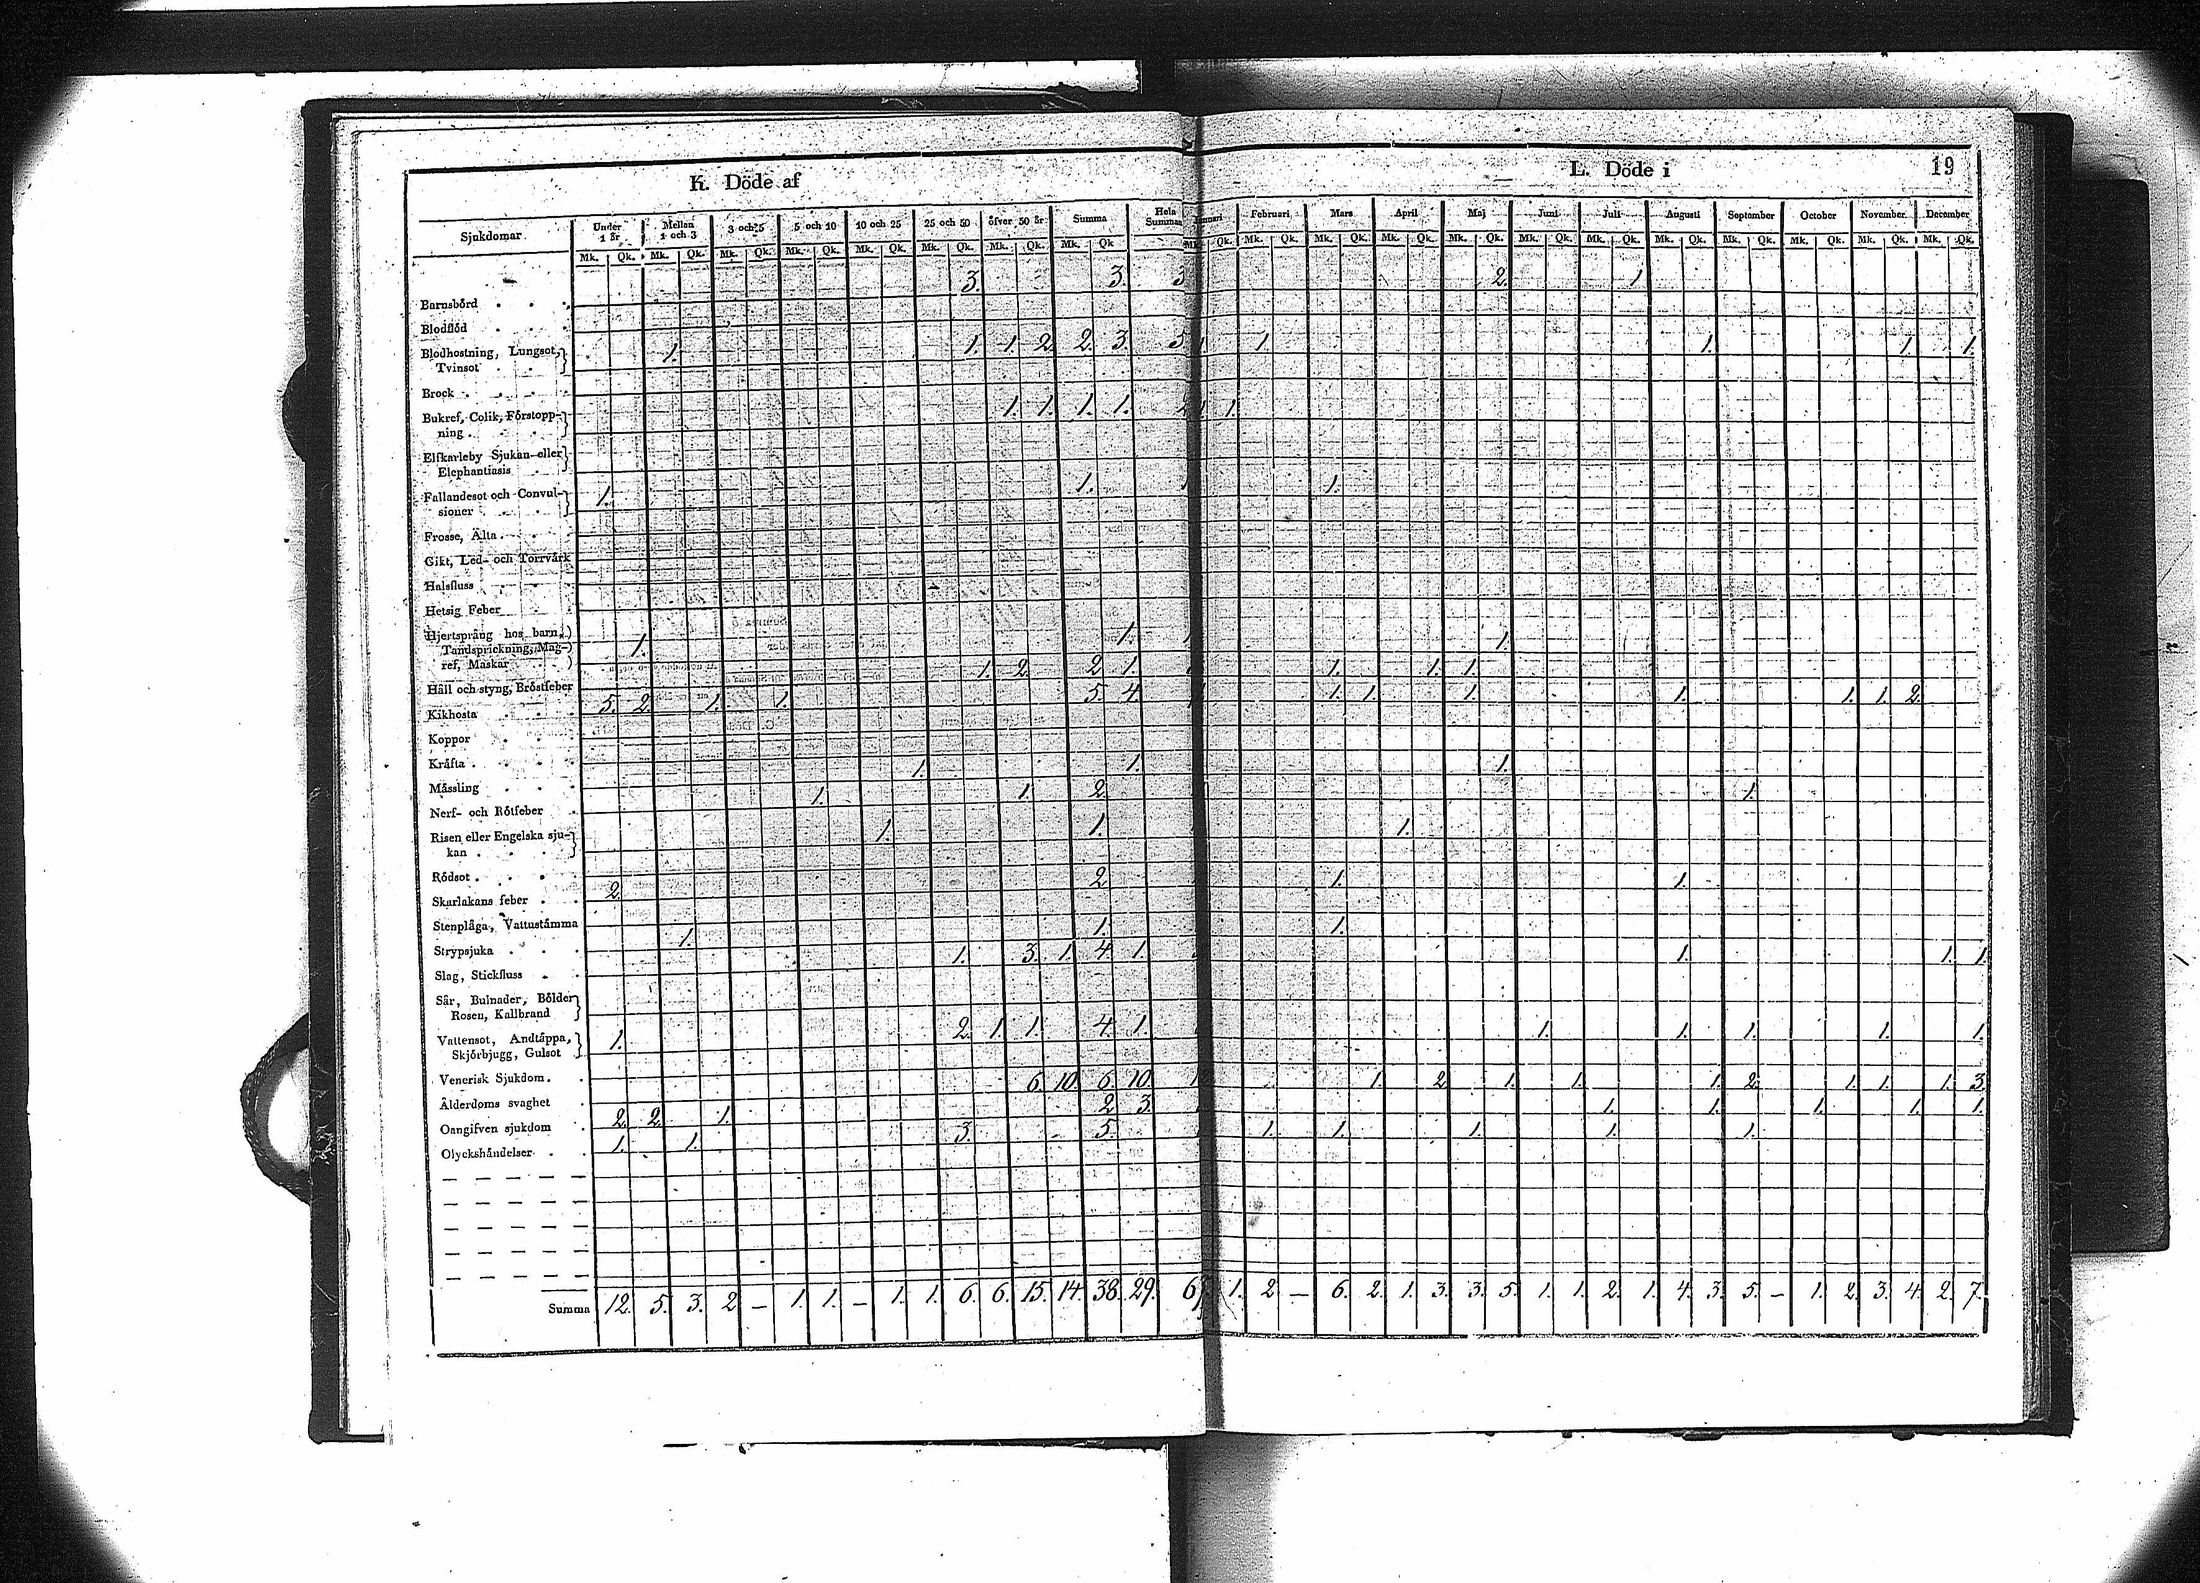 K. Döde af
L. Döde i
19
Sjukdomar
Under 1 år
Mellan 1 och 3
3 och 5
5 och 10
10 och 25
25 och 50
öfver 50 år
Summa
Hela Summan
Februari
Mars
April
Maj
Juni
Juli
Augusti
September
October
November
December
Mk. Qk. Mk. Qk. Mk. Qk. Mk. Qk. Mk. Qk. Mk. Qk. Mk. Qk. Mk. Qk.
Qk. Mk. Qk. Mk. Qk. Mk. Qk. Mk. Qk. Mk. Qk. Mk. Qk. Mk. Qk. Mk. Qk. Mk. Qk. Mk. Qk. Mk. Qk.
3. 3. 3 2. 1
Barnsbörd
Blodflöd
Blodhostning, Lungsot, 1. 1. 1. 2. 2. 3. 5 1. 1. 1. 1.
Tvinsot
Brock
Bukref, Colik, Förstopp- 1. 1. 1. 1. 1.
ning
Elfkarleby Sjukan eller
Elephantiasis
Fallandesot och Convul- 1. 1. 1.
sioner
Frosse, Älta
Gikt, Led- och Torrvärk
Halsfluss
Hetsig Feber
Hjertsprång hos barn, 1. 1. 1.
Tandsprickning, Mag-
ref, Maskar
1. 2. 2. 1. 1. 1. 1.
Håll och styng, Bröstfeber
5. 2. 1. 1. 5. 4. 1. 1. 1. 1. 1. 1. 2.
Kikhosta
Koppor
Kräfta 1. 1. 1.
Mässling 1. 1. 2. 1.
Nerf- och Rötfeber
Risen eller Engelska sju- 1. 1. 1.
kan
Rödsot 2. 2. 1. 1.
Skarlakans feber
Stenplåga, Vattustämma 1. 1. 1.
Strypsjuka 1. 3. 1. 4. 1. 1. 1. 1.
Slag, Stickfluss
Sår, Bulnader, Bölder
Rosen, Kallbrand
Vattensot, Andtäppa, 1. 2. 1. 1. 4. 1. 1. 1. 1. 1. 1.
Skjörbjugg, Gulsot
Venerisk Sjukdom. 6. 10. 6. 10. 1. 2. 1. 1. 1. 2. 1. 1. 1. 3.
Ålderdoms svaghet 2. 2. 1. 2. 3. 1. 1. 1. 1. 1.
Oangifven sjukdom 1. 1. 3. 5. 1. 1. 1. 1. 1.
Olyckshändelser
Summa 12. 5. 3. 2 — 1. 1. — 1. 1. 6. 6. 15. 14. 38. 29. 67 1. 2 — 6. 2. 1. 3. 3. 5. 1. 1. 2. 1. 4. 3. 5. — 1. 2. 3. 4. 2. 7.